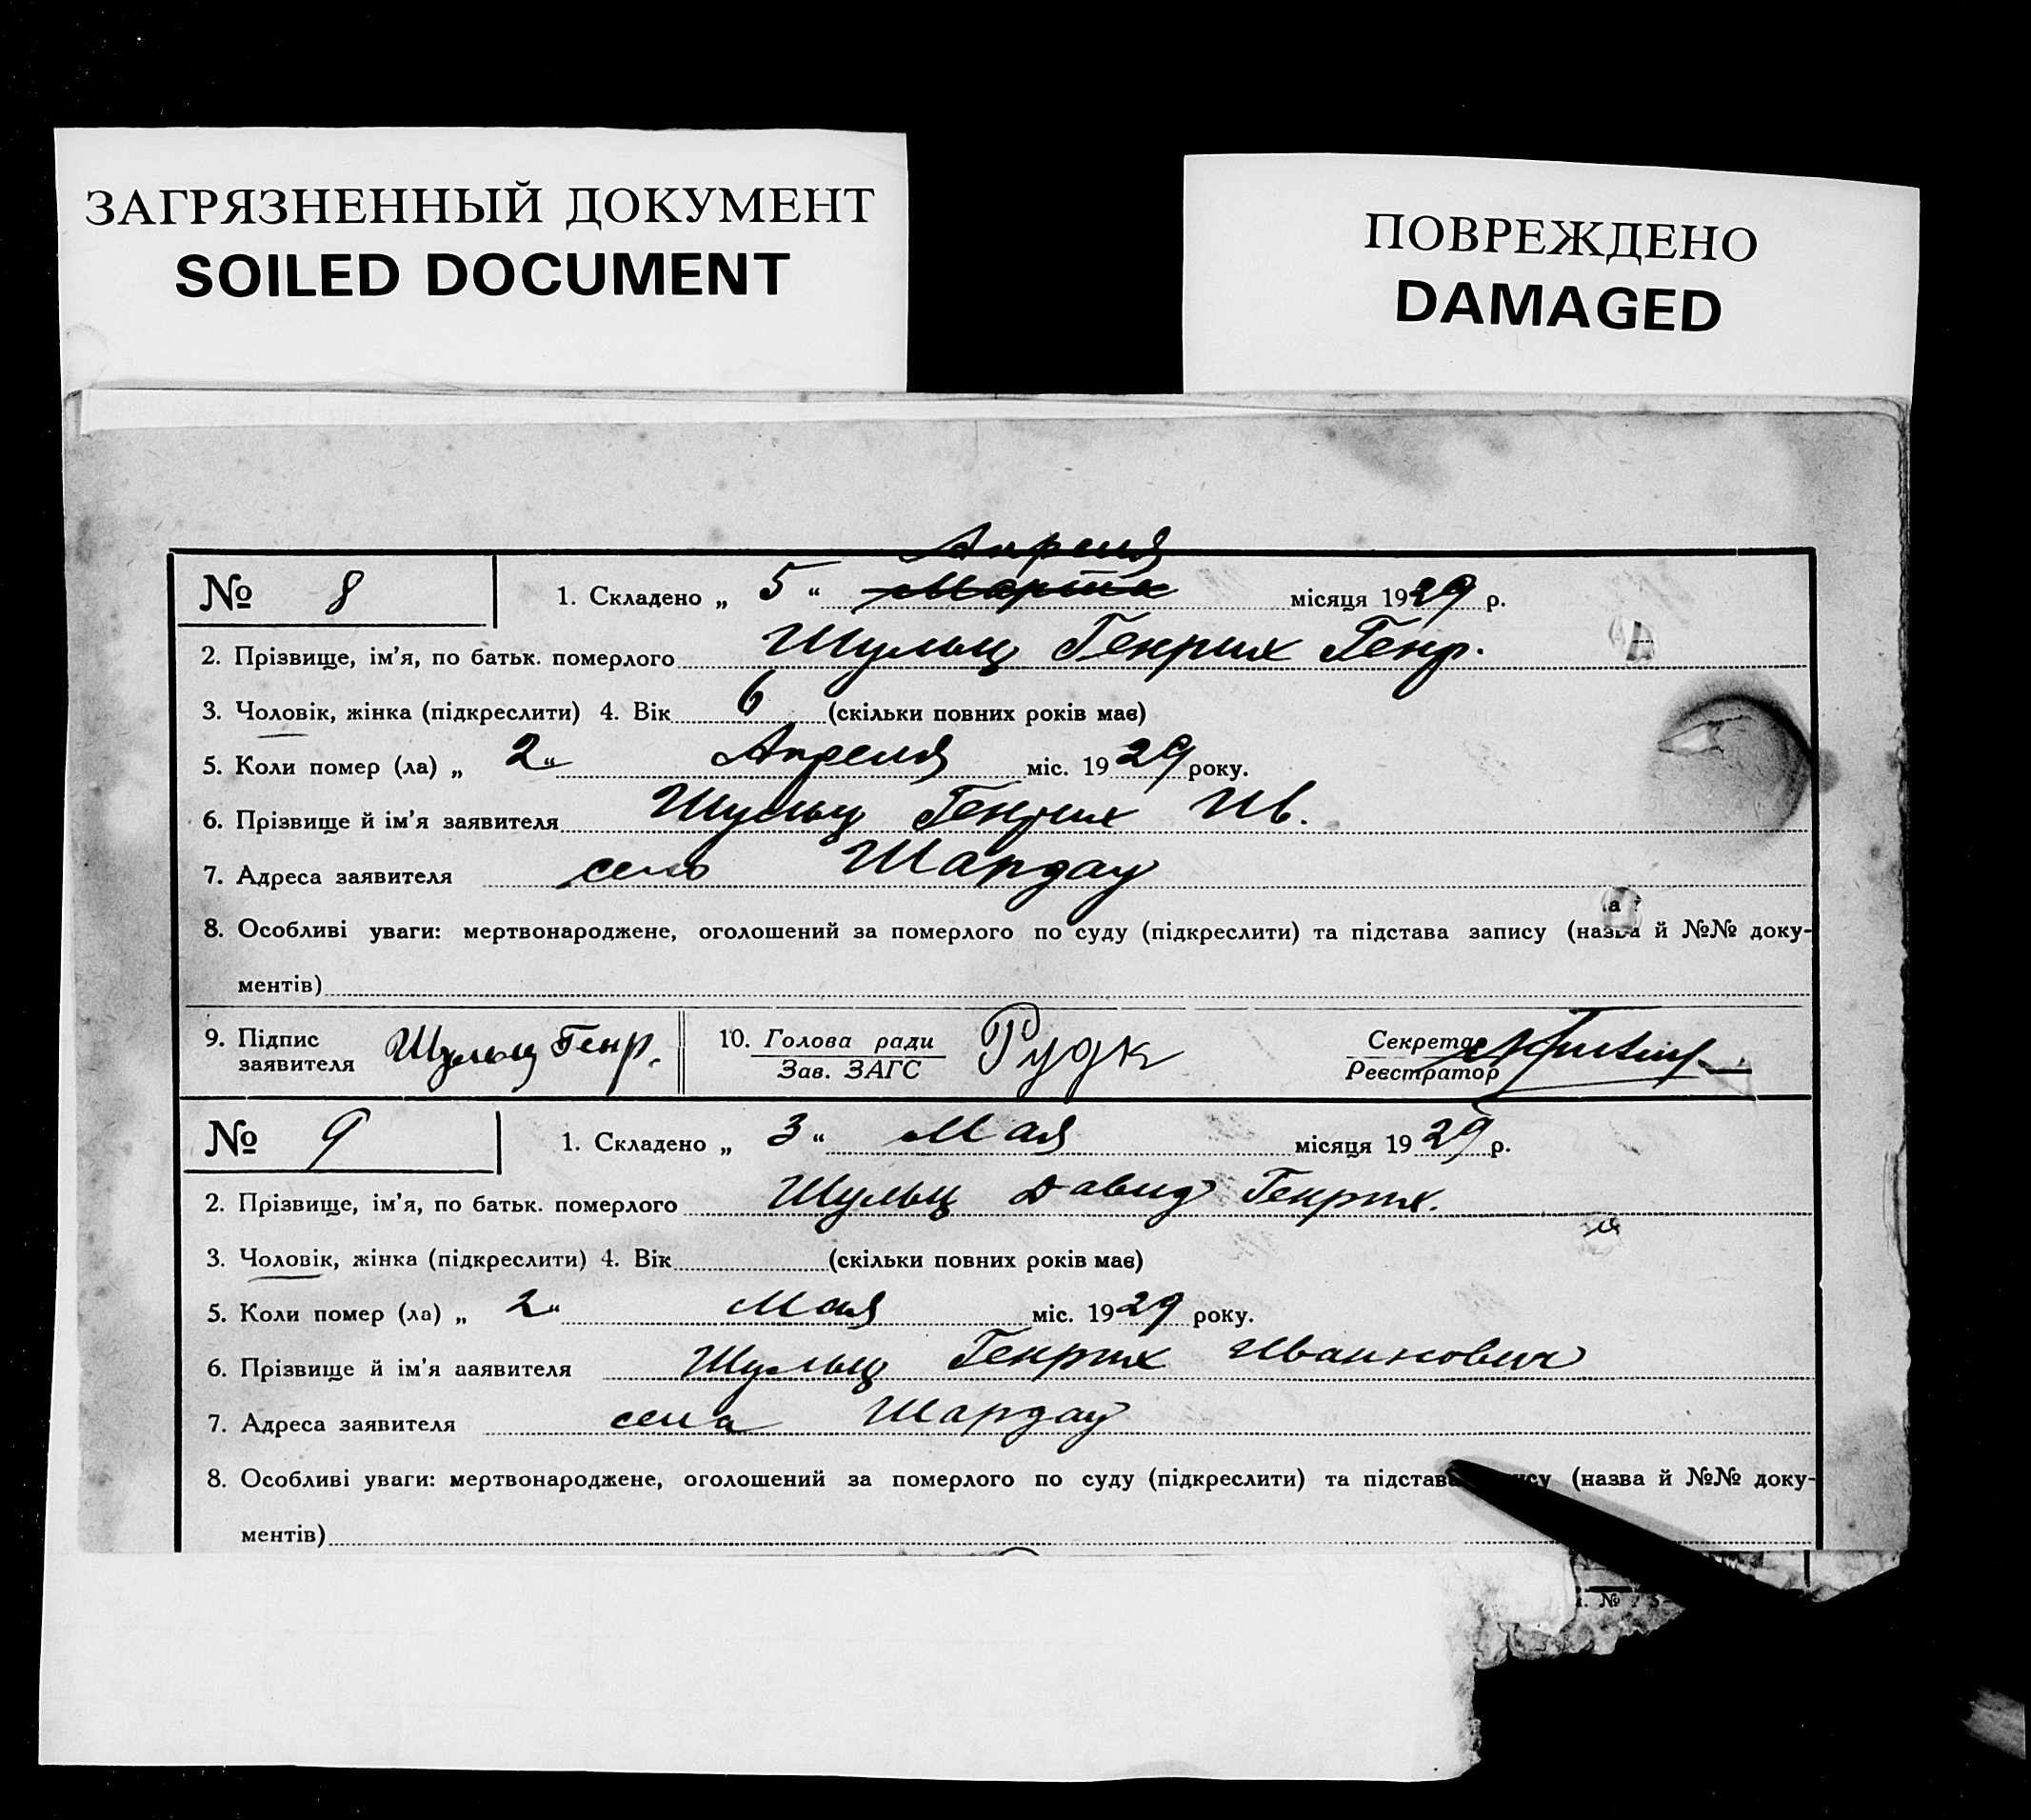 ЗАГРЯЗНЕННЫЙ ДОКУМЕНТ
SOILED DOCUMENT
ПОВРЕЖДЕНО
DAMAGED
Апреля
№ 8 1. Складено „ 5 “ Марта місяця 1929 р.
2. Прізвище, ім’я, по батьк. померлого Шульц Генрих Генр.
3. Чоловік, жінка (підкреслити) 4. Вік 6 (скільки повних років має)
5. Коли помер (ла) „ 2 “ Апреля міс. 1929 року.
6. Прізвище й ім’я заявителя Шульц Генрих Ив.
7. Адреса заявителя село Шардау
8. Особливі уваги: мертвонароджене, оголошений за померлого по суду (підкреслити) та підстава запису (назва й №№ доку-
ментів)
9. Підпис заявителя Шульц Генр. 10. Голова ради Зав. ЗАГС Рудк Секретар Реєстратор
№ 9 1. Складено „ 3 “ Мая місяця 1929 р.
2. Прізвище, ім’я, по батьк. померлого Шульц Давид Генрих.
3. Чоловік, жінка (підкреслити) 4. Вік (скільки повних років має)
5. Коли помер (ла) „ 2 “ Мая міс. 1929 року.
6. Прізвище й ім’я ааявителя Шульц Генрих Иванович
7. Адреса заявителя села Шардау
8. Особливі уваги: мертвонароджене, оголошений за померлого по суду (підкреслити) та підстава (назва й №№ доку-
ментів)